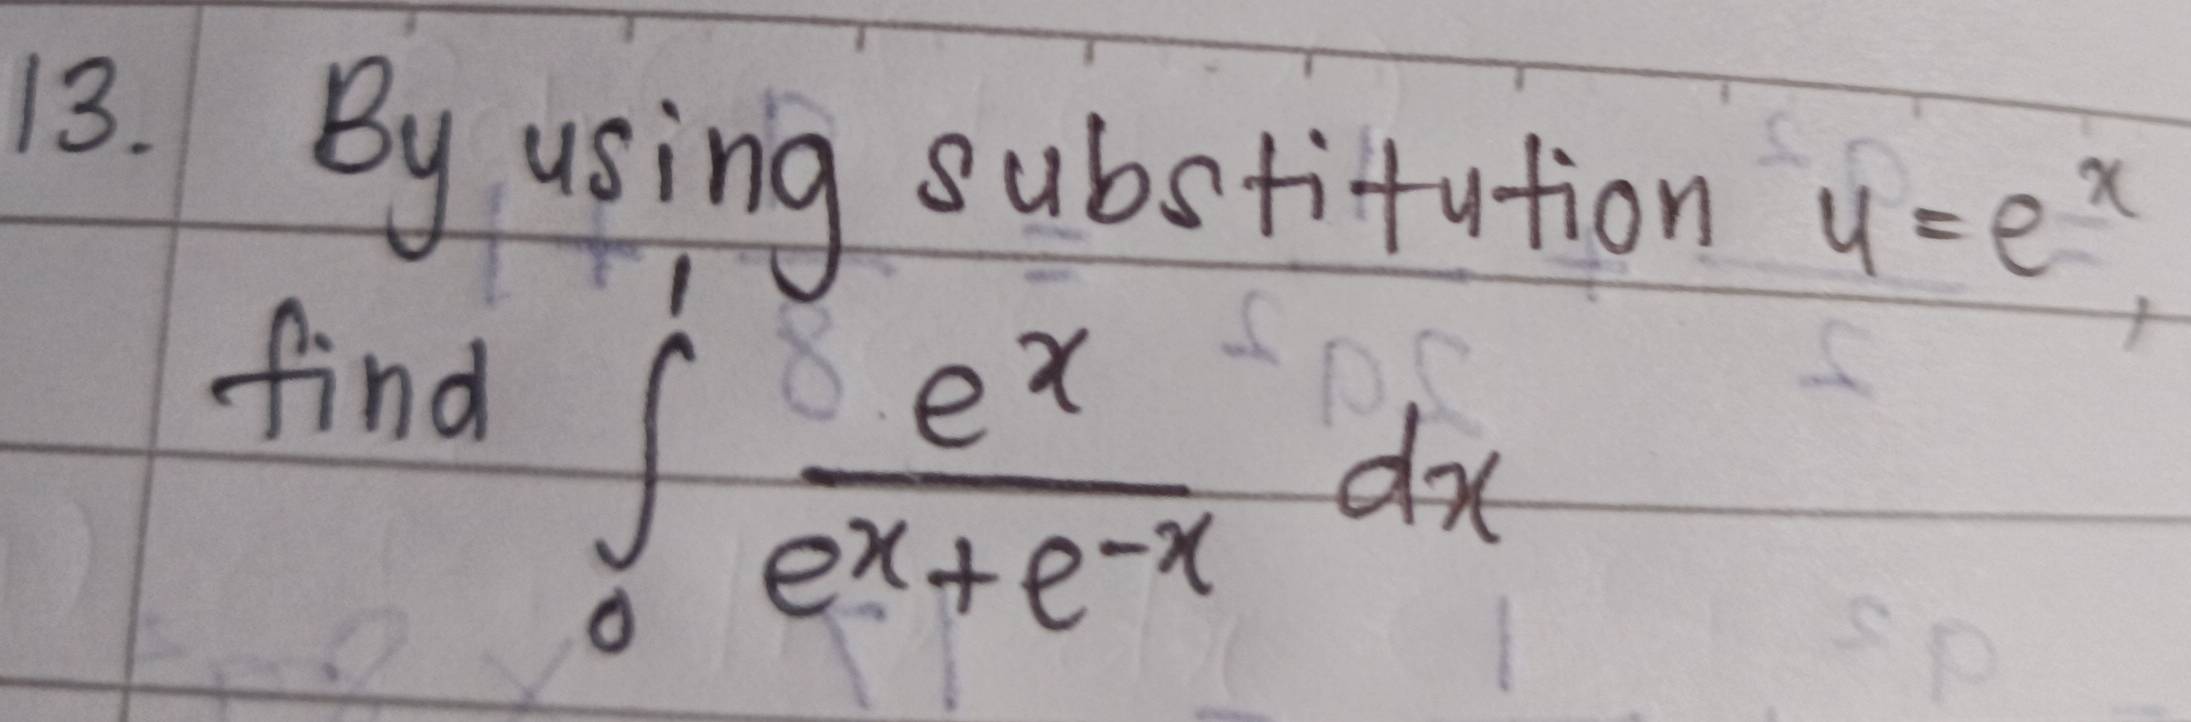 13. By using substitution u = eˣ,
find ∫₀¹ eˣ / (eˣ + e⁻ˣ) dx